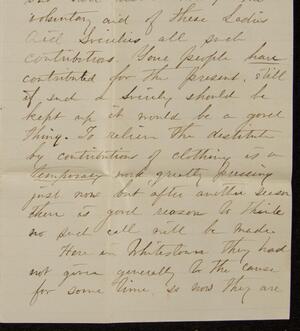 voluntary aid of these Ladies
Aid Societies all such
contributions. Your people have
contributed for the present, still
if such a Society should be
kept up it would be a good
thing. To relieve the destitute
by contributions of clothing is a
temporary work, greatly pressing
just now but after another season
there is good reason to think
no such call will be made.
Here in Whitestown they had
not given generally to the cause
for some time, so now they are